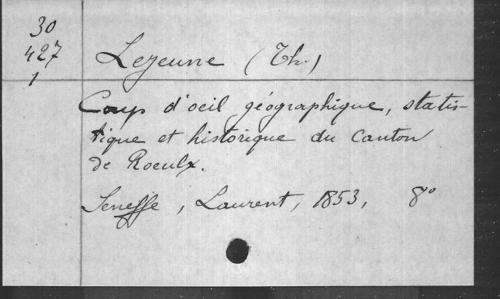 30
427
1
Lejeune (Th.)
Coup d'oeil géographique, statis-
tique et historique du canton
de Roeulx.
Seneffe, Laurent, 1853, 8°